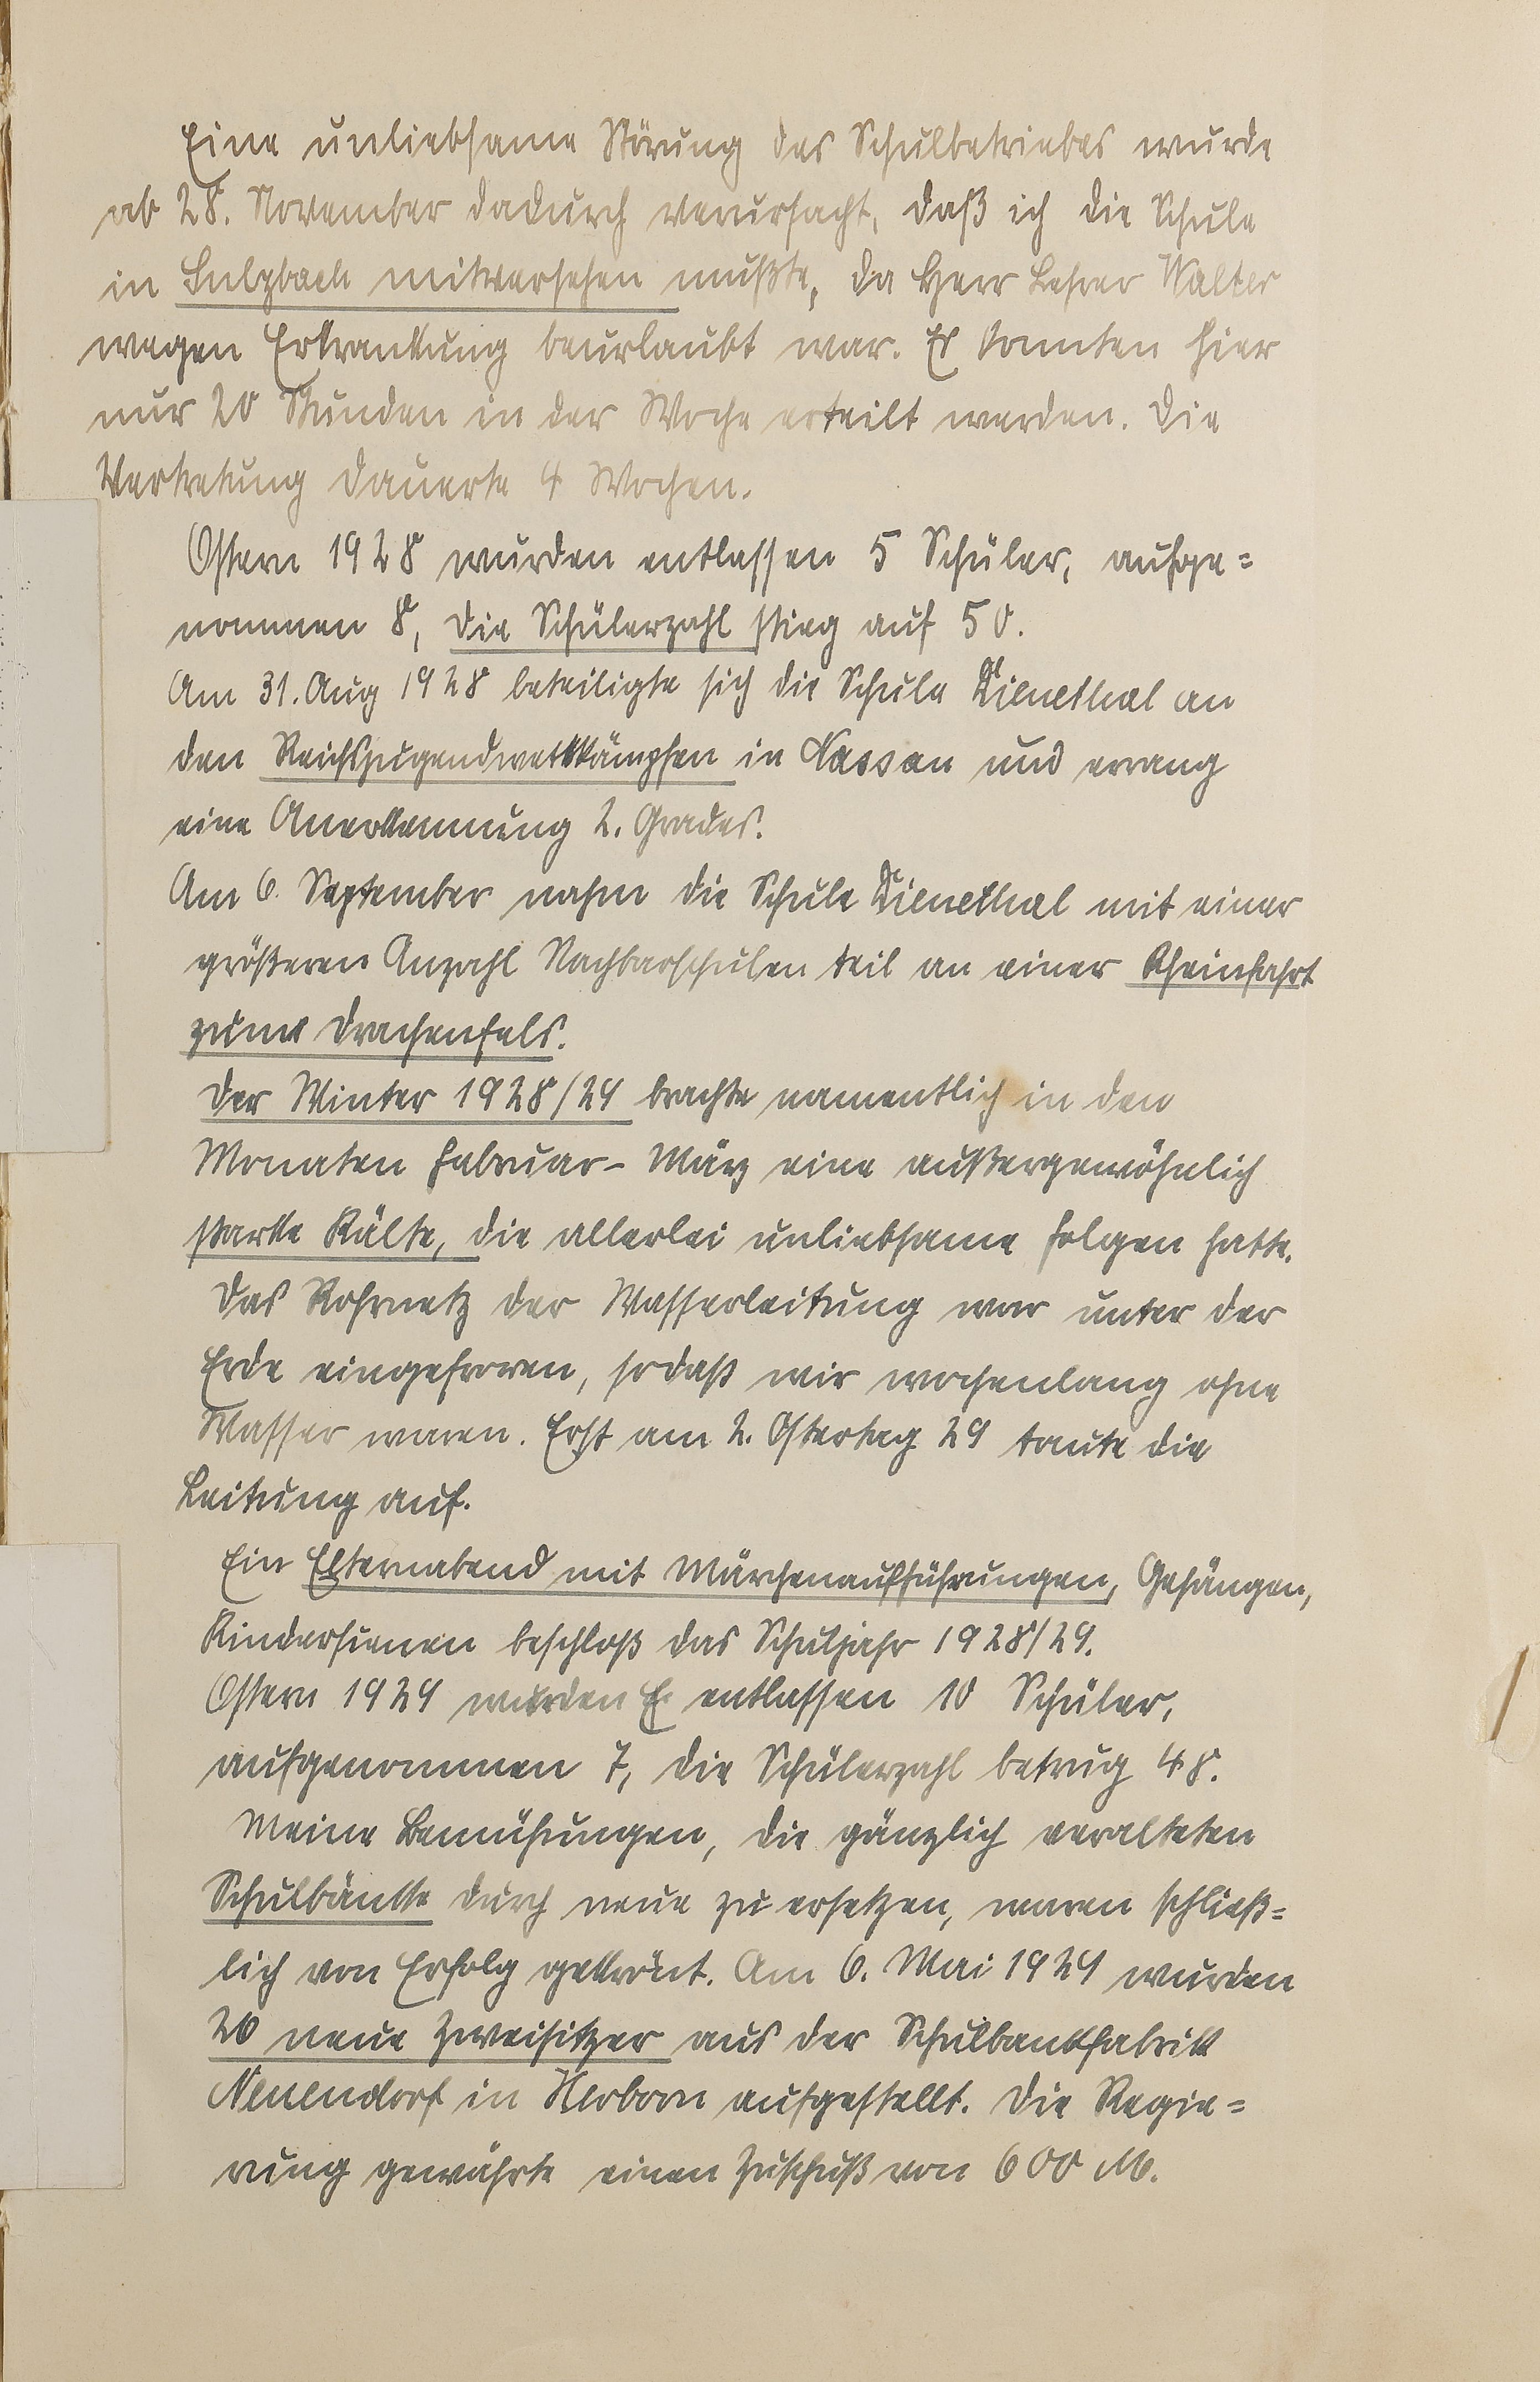 Eine unliebsame Störung des Schulbetriebes wurde
ab 28. November dadurch verursacht, daß ich die Schule
in Sulzbach mitversehen mußte, da Herr Lehrer Walter
wegen Erkrankung beurlaubt war. Es konnten hier
nur 20 Stunden in der Woche erteilt werden. Die
Vertretung dauerte 4 Wochen.
Ostern 1928 wurden entlassen 5 Schüler, aufge=
nommen 8, die Schülerzahl stieg auf 50.
Am 31. Aug 1928 beteiligte sich die Schule Dienethal an
den Reichsjugendwettkämpfen in Nassau und errang
eine Anerkennung 2. Grades.
Am 6. September nahm die Schule Dienethal mit einer
größeren Anzahl Nachbarschulen teil an einer Rheinfahrt
zum Drachenfels.
Der Winter 1928/29 brachte namentlich in den
Monaten Februar - März eine außergewöhnlich
starke Kälte, die allerlei unliebsame Folgen hatte.
Das Rohrnetz der Wasserleitung war unter der
Erde eingefroren, sodaß wir wochenlang ohne
Wasser waren. Erst am 2. Ostertag 29 taute die
Leitung auf.
Ein Elternabend mit Märchenaufführungen, Gesängen,
beschloß das Schuljahr 1928/29.
Ostern 1929 wurden entlassen 10 Schüler,
aufgenommen 7, die Schülerzahl betrug 48.
Meine Bemühungen, die gänzlich veralteten
Schulbänke durch neue zu ersetzen, waren schließ=
lich von Erfolg gekrönt. Am 6. Mai 1929 wurden
20 neue Zweisitzer aus der Schulbankfabrik
Neuendorf in Herborn aufgestellt. Die Regie=
rung gewährte einen Zuschuß von 600 M.